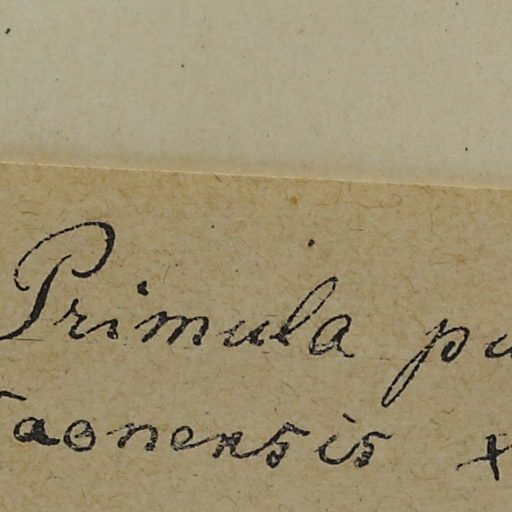 Primula pu
Taonensis x